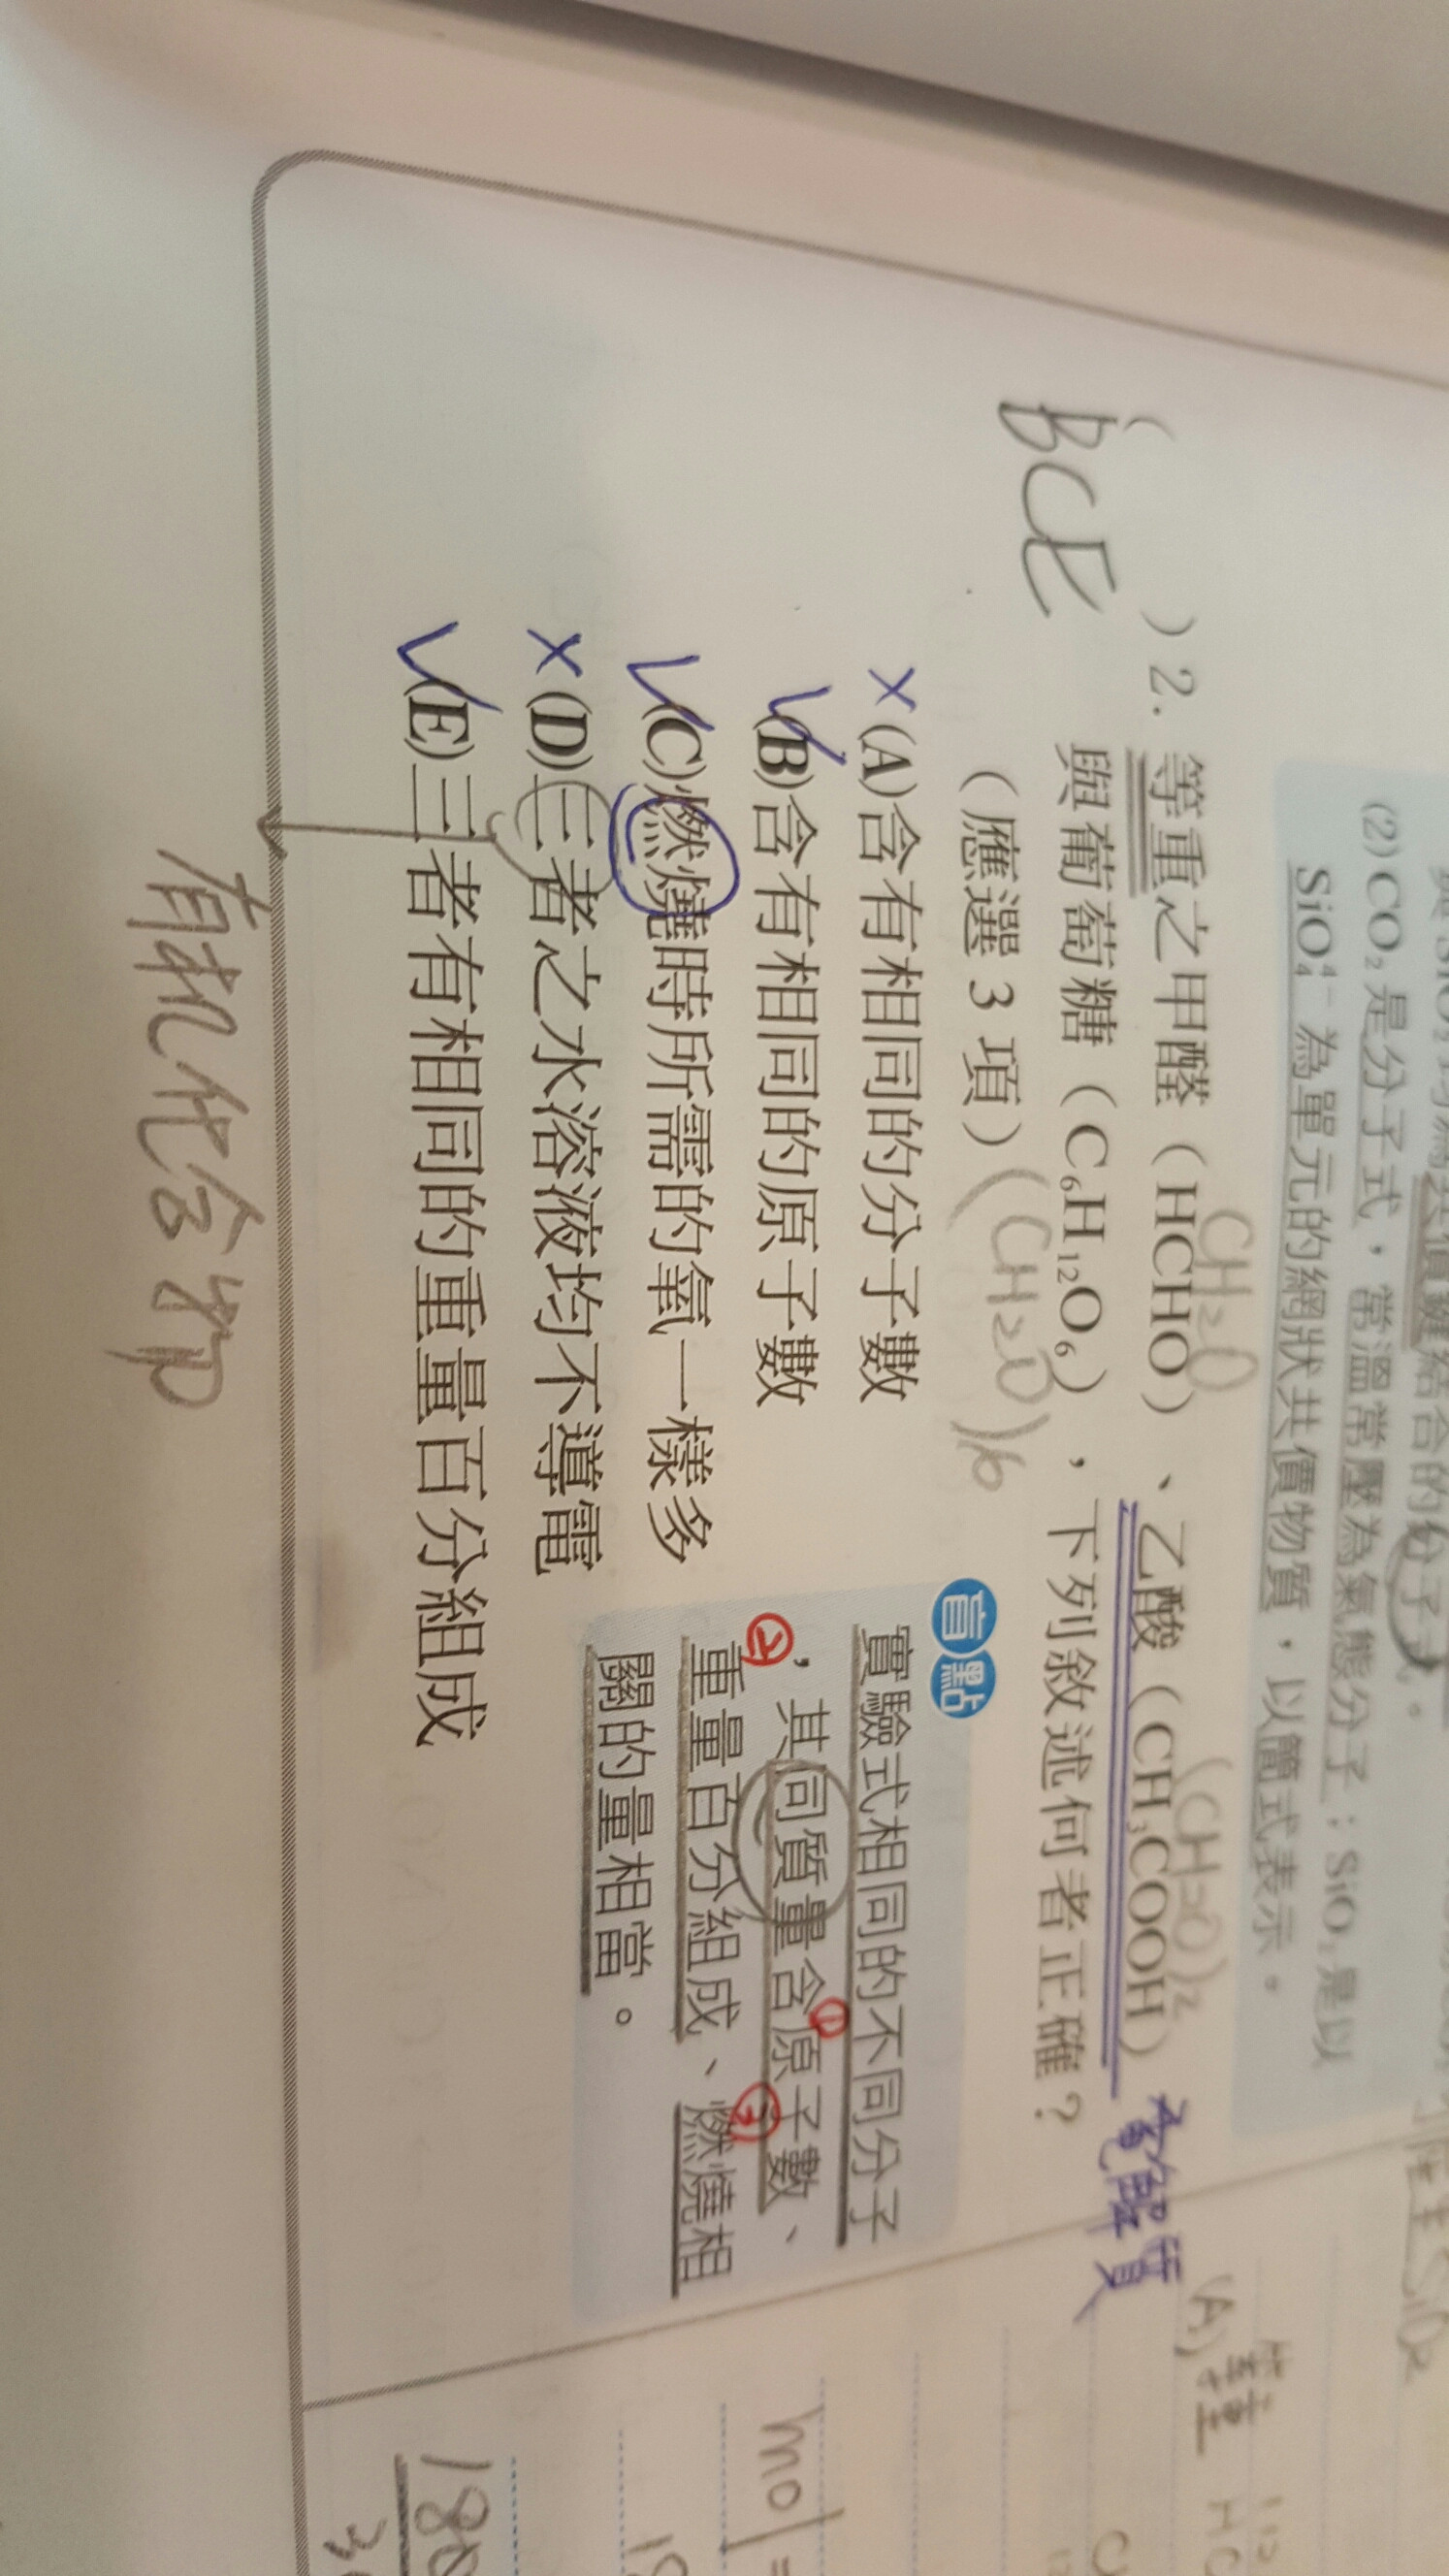 (2)CO₂是分子式，常溫常壓為氣態分子；SiO₂是以
SiO₄⁴⁻為單元的網狀共價物質，以簡式表示。
CH₂O
(CH₂O)₂
( )2. 等重之甲醛（HCHO）、乙酸（CH₃COOH）
電解質
與葡萄糖（C₆H₁₂O₆），下列敘述何者正確？
BCE
（應選 3 項）
(CH₂O)6
×(A)含有相同的分子數
✓(B)含有相同的原子數
✓(C)燃燒時所需的氧一樣多
×(D)三者之水溶液均不導電
✓(E)三者有相同的重量百分組成
盲點
實驗式相同的不同分子
，其同質量含①原子數、
②重量百分組成、③燃燒相
關的量相當。
有机化合物
(A) 等重
mol =
180